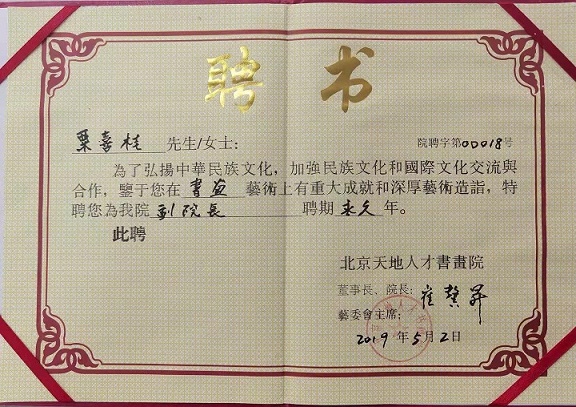 聘书
栗喜桂 先生/女士: 院聘字第00018号
為了弘揚中華民族文化，加強民族文化和國際文化交流與
合作，鑒于您在 書畫 藝術上有重大成就和深厚藝術造詣，特
聘您為我院 副院長 聘期 永久 年。
此聘
北京天地人才書畫院
董事長、院長: 崔
藝委會主席:
2019年5月2日